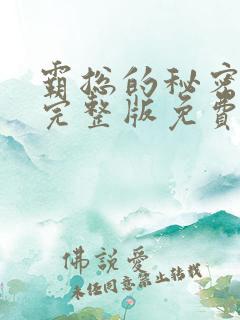 霸总的秘密
完整版免费
佛說愛
未经同意禁止转载